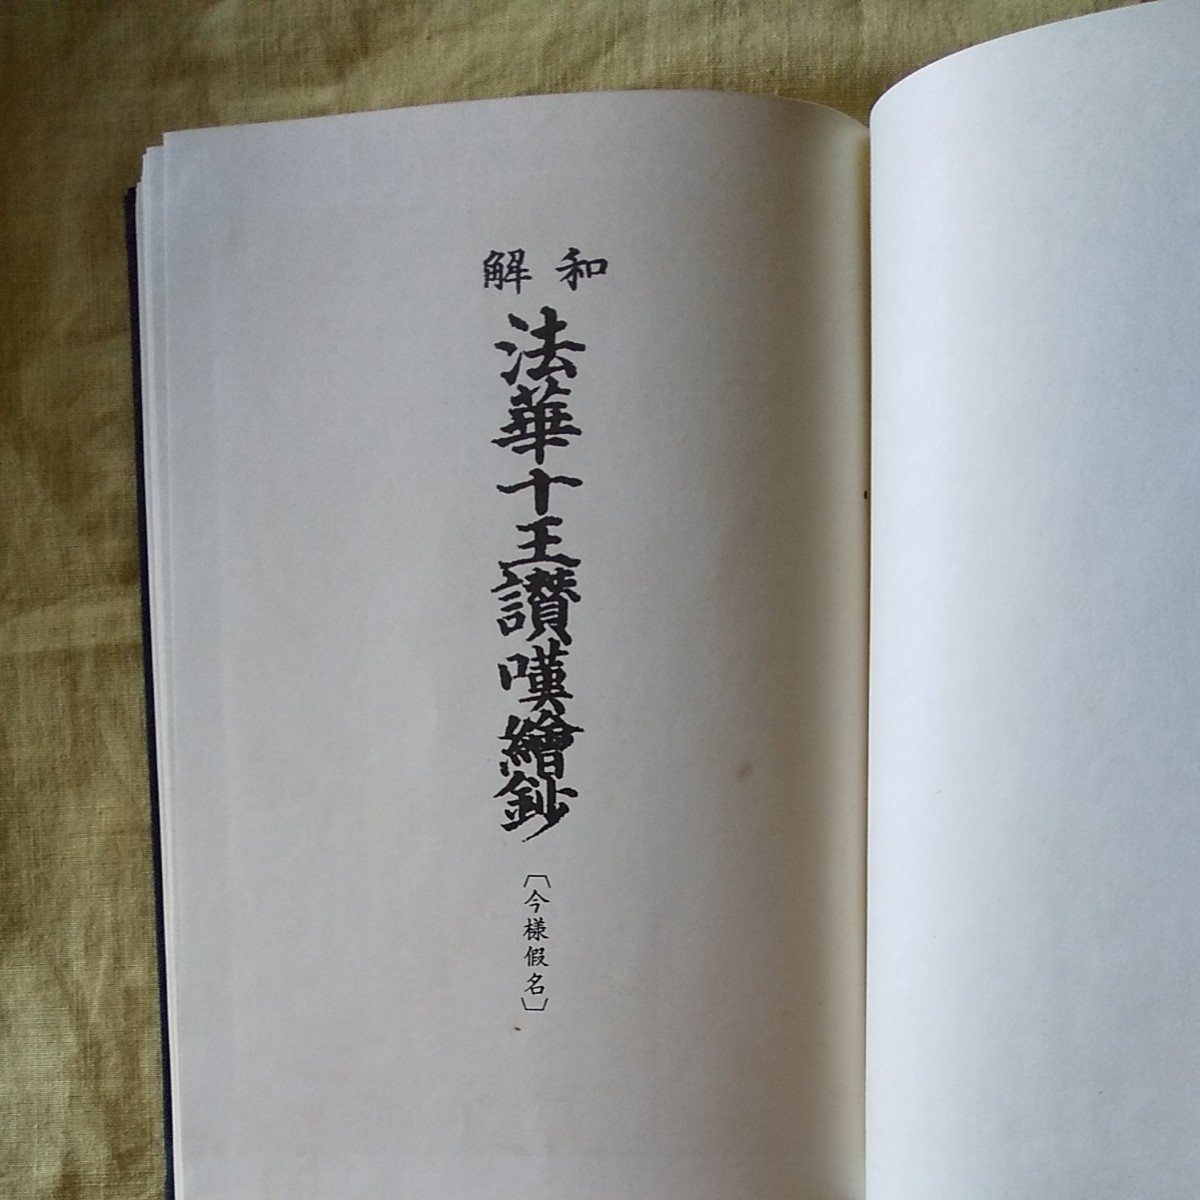 和解
法華十王讃嘆繪鈔
〔今様假名〕